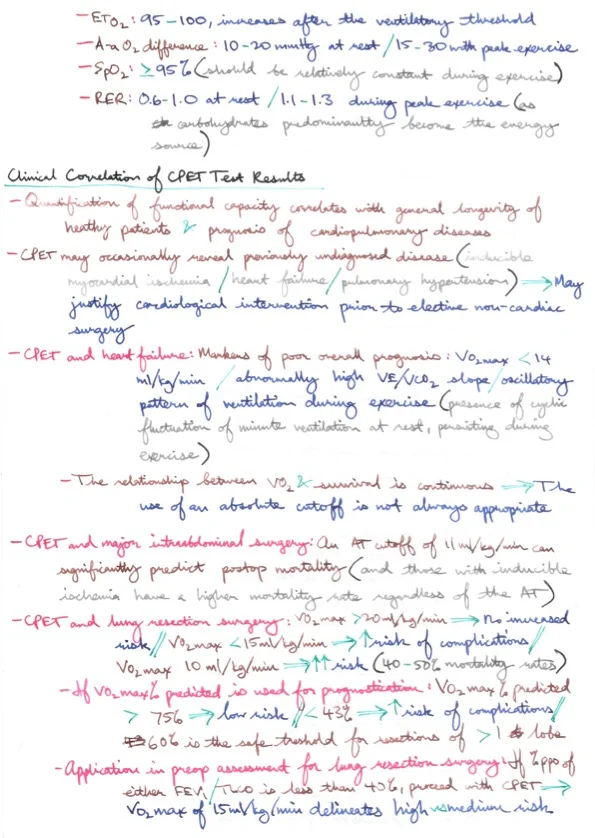 - ETO₂: 95-100, increases after the ventilatory threshold
- A-a O₂ difference: 10-20 mmHg at rest / 15-30 with peak exercise
- SpO₂: ≥ 95% (should be relatively constant during exercise)
- RER: 0.6-1.0 at rest / 1.1-1.3 during peak exercise (as
carbohydrates predominantly become the energy
source)
Clinical Correlation of CPET Test Results
- Quantification of functional capacity correlates with general longevity of
healthy patients & prognosis of cardiopulmonary diseases
- CPET may occasionally reveal previously undiagnosed disease (inducible
myocardial ischemia / heart failure / pulmonary hypertension) ⇒ May
justify cardiological intervention prior to elective non-cardiac
surgery
- CPET and heart failure: Markers of poor overall prognosis: VO₂max < 14
ml/kg/min / abnormally high VE/VCO₂ slope / oscillatory
pattern of ventilation during exercise (presence of cyclic
fluctuation of minute ventilation at rest, persisting during
exercise)
- The relationship between VO₂ & survival is continuous ⇒ The
use of an absolute cutoff is not always appropriate
- CPET and major intraabdominal surgery: An AT cutoff of 11 ml/kg/min can
significantly predict postop mortality (and those with inducible
ischemia have a higher mortality rate regardless of the AT)
- CPET and lung resection surgery: VO₂max >20ml/kg/min ⇒ No increased
risk // VO₂max <15ml/kg/min ⇒ ↑risk of complications //
VO₂max 10 ml/kg/min ⇒ ↑↑ risk (40-50% mortality rates)
- If VO₂max% predicted is used for prognostication: VO₂max% predicted
> 75% ⇒ low risk // < 43% ⇒ ↑risk of complications //
60% is the safe treshold for resections of > 1 lobe
- Application in preop assessment for lung resection surgery: If %ppo of
either FEV₁/TLCO is less than 40%, proceed with CPET ⇒
VO₂max of 15ml/kg/min delineates high vs medium risk